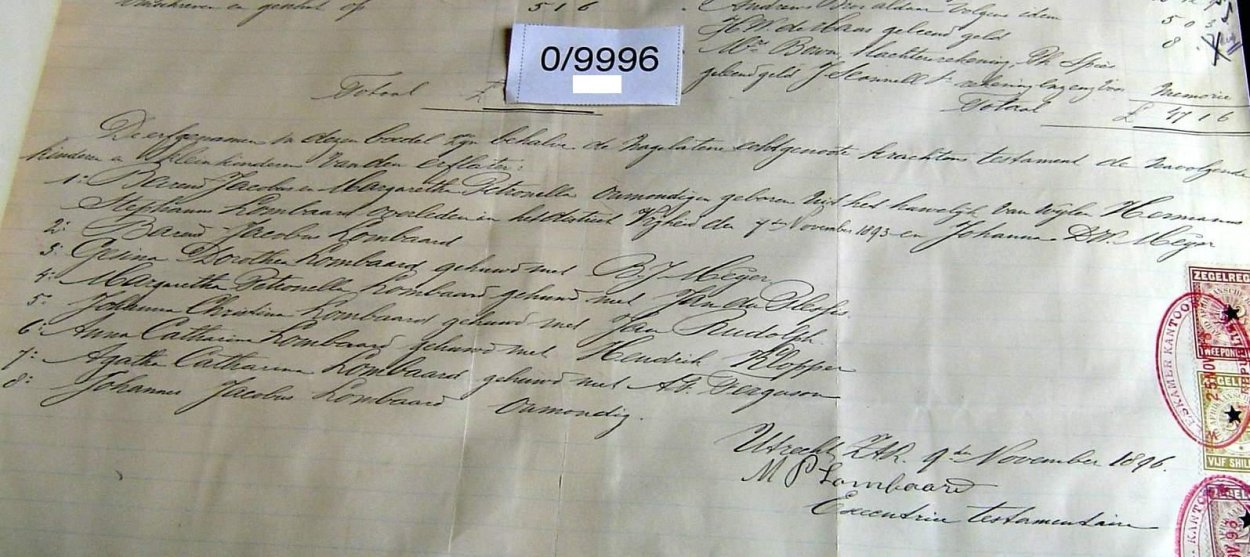 Andries Vos aldem volgens idem
geschat op 5 1 6
H.W. de Haas geleend geld 5 0
0/9996
Mev Bouw Slachtersrekening, Ph Spies 8
geleend geld,
Memorie
Totaal £
Totaal £ 77 1 6
De erfgenamen in dezen boedel zijn behalve de nagelatene echtgenoote krachtens testament de navolgende
kinderen en Kleinkinderen van den erflater:
1: Barend Jacobus en Margaretha Petronella onmondigen geboren uit het huwelijk van wijlen Hermanus
Stephanus Lombaard overleden in het district Vrijheid den 7de November 1893 en Johanna D.W. Meyer
2: Barend Jacobus Lombaard
3: Gesina Dorothea Lombaard gehuwd met B.J. Meyer
4: Margaretha Petronella Lombaard gehuwd met Jan du Plessis
5: Johanna Christina Lombaard gehuwd met Jan Rudolph
6: Anna Catharina Lombaard gehuwd met Hendrik Klopper
7: Agatha Catharina Lombaard gehuwd met A.F. Ferguson
8: Johannes Jacobus Lombaard onmondig.
Utrecht, Z.A.R. 9de November 1896.
M P Lombaard
Executrice testamentaire
ZEGELREC
TWEE PON
ESKAMER KANTOO
25 NOV
VIJF SHIL